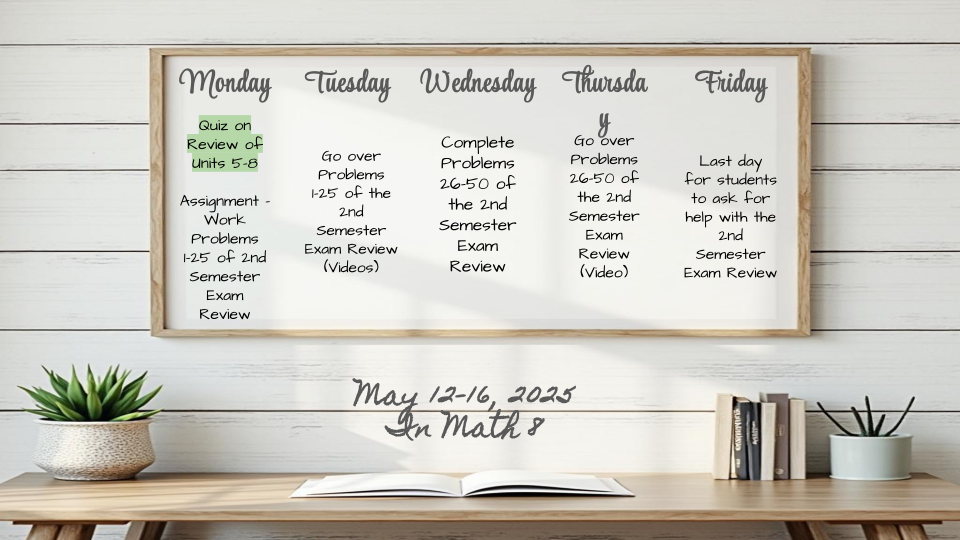 Monday
Quiz on
Review of
Units 5-8
Assignment -
Work
Problems
1-25 of 2nd
Semester
Exam
Review
Tuesday
Go over
Problems
1-25 of the
2nd
Semester
Exam Review
(Videos)
Wednesday
Complete
Problems
26-50 of
the 2nd
Semester
Exam
Review
Thursda
y
Go over
Problems
26-50 of
the 2nd
Semester
Exam
Review
(Video)
Friday
Last day
for students
to ask for
help with the
2nd
Semester
Exam Review
May 12-16, 2025
In Math 8